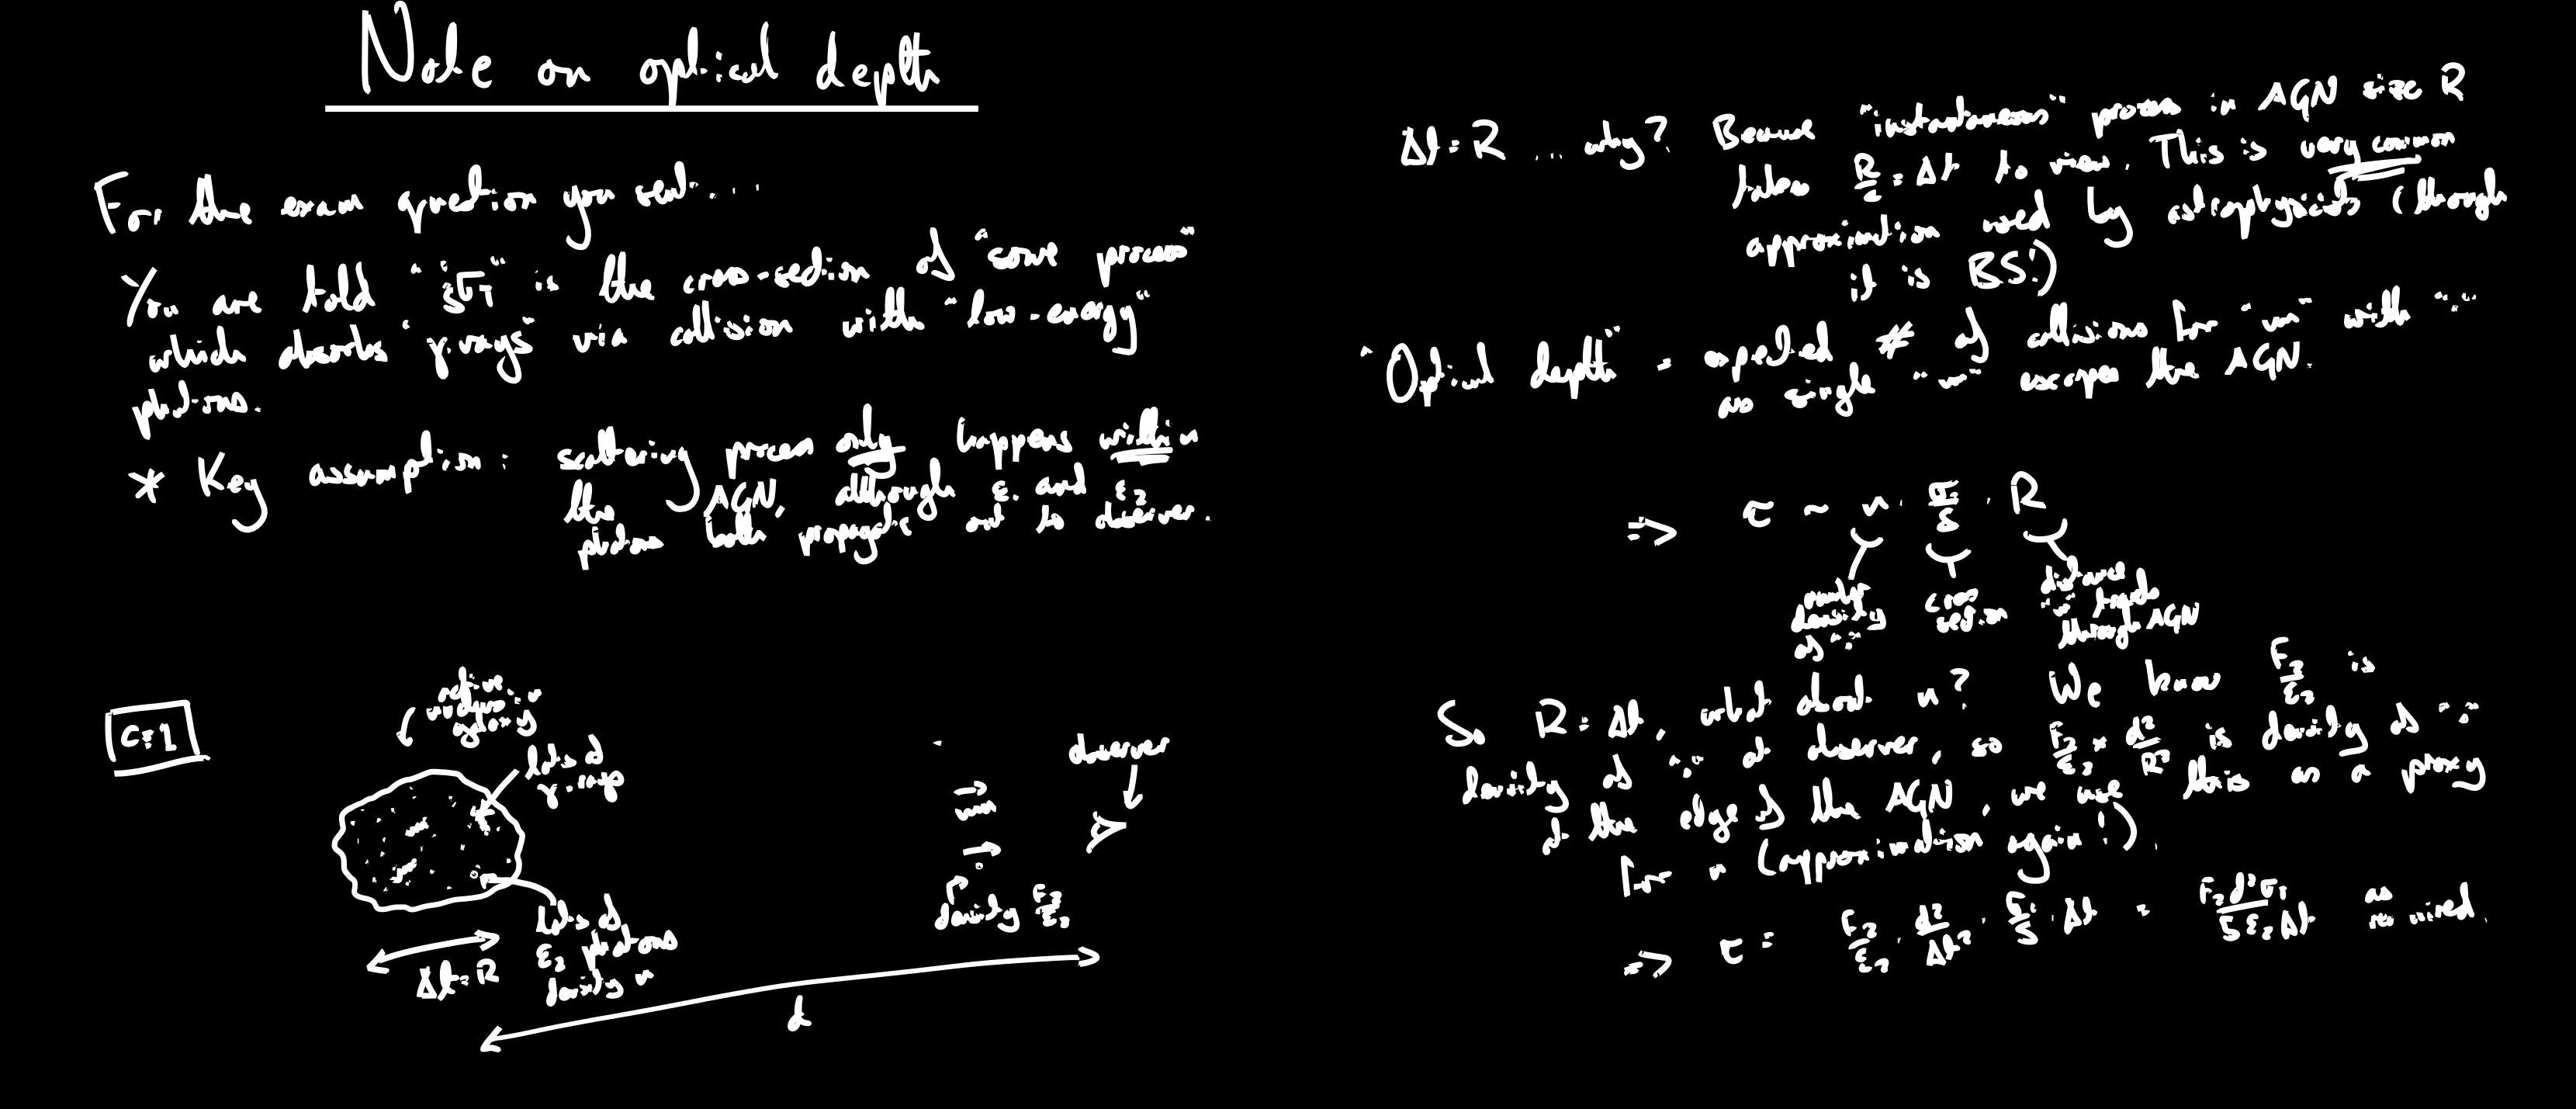 Note on optical depth
For the exam question you sent...
You are told "1/5 σ_T" is the cross-section of "some process"
which absorbs "γ-rays" via collision with "low-energy"
photons.
* Key assumption: scattering process only happens within
the AGN, although ε₁ and ε₂
photons both propagate out to observer.
c=1
active
galaxy
lots of
γ-rays
observer
density F₂/ε₂
lots of
ε₂ photons
density n
Δt=R
d
Δt=R ... why? Because "instantaneous" process in AGN size R
takes R/c = Δt to view. This is very common
approximation used by astrophysicists (though
it is BS!)
"Optical depth" = expected # of collisions for "~" with "·"
as single "~" escapes the AGN.
⇒ τ ~ n · σ_T/5 · R
number
density
of "·"
cross
section
distance
"~" travels
through AGN
So R=Δt, what about n? We know F₂/ε₂ is
density of "·" at observer, so F₂/ε₂ × d²/R² is density of "·"
at the edge of the AGN, we use this as a proxy
for n (approximation again!).
⇒ τ = F₂/ε₂ · d²/Δt² · σ_T/5 · Δt = F₂d²σ_T/5ε₂Δt as
required.